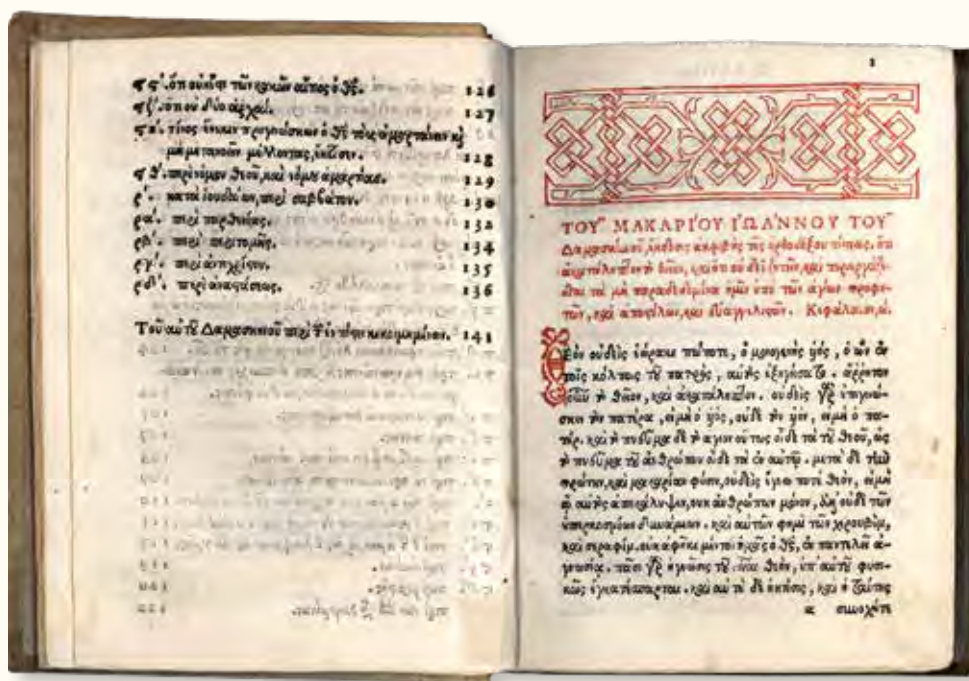 ϟϛʹ. ὅτι οὐκ ἔστι τῶν κακῶν αἴτιος ὁ θς̃. 126
ϟζʹ. ὅτι οὐ δύο ἀρχαί. 127
ϟηʹ. τίνος ἕνεκεν προγινώσκων ὁ θς̃ τοὺς ἁμαρτάνειν καὶ
μὴ μετανοεῖν μέλλοντας, ἔκτισεν. 128
ϟθʹ. περὶ νόμου θεοῦ, καὶ νόμου ἁμαρτίας. 129
ρʹ. κατὰ ἰουδαίων, περὶ σαββάτου. 130
ραʹ. περὶ παρθενίας. 132
ρβʹ. περὶ περιτομῆς. 134
ργʹ. περὶ ἀντιχρίστου. 135
ρδʹ. περὶ ἀναστάσεως. 136
Τοῦ αὐτοῦ Δαμασκηνοῦ περὶ τῶν ἐν πίστει κεκοιμημένων. 141
1
ΤΟΥ͂ ΜΑΚΑΡΙ΄ΟΥ ἸΩΑΝΝΟΥ ΤΟΥ͂
Δαμασκηνοῦ, ἔκδοσις ἀκριβὴς τῆς ὀρθοδόξου πίστεως, ὅτι
ἀκατάληπτον τὸ θεῖον, καὶ ὅτι οὐ δεῖ ζητεῖν, καὶ περιεργάζε-
σθαι τὰ μὴ παραδεδομένα ἡμῖν ὑπὸ τῶν ἁγίων προφη-
τῶν, καὶ ἀποστόλων, καὶ εὐαγγελιστῶν. Κεφάλαιον, α.
Θεὸν οὐδεὶς ἑώρακε πώποτε, ὁ μονογενὴς ὑὸς, ὁ ὢν ἐν
τοῖς κόλποις τοῦ πατρὸς, αὐτὸς ἐξηγήσατο. ἄρρητον
οὖν τὸ θεῖον, καὶ ἀκατάληπτον. οὐδεὶς γὰρ ἐπιγινώ-
σκει τὸν πατέρα, εἰ μὴ ὁ ὑὸς, οὐδὲ τὸν ὑὸν, εἰ μὴ ὁ πα-
τήρ. καὶ τὸ πνεῦμα δὲ τὸ ἅγιον οὕτως οἶδε τὰ τοῦ θεοῦ, ὡς
τὸ πνεῦμα τοῦ ἀνθρώπου οἶδε τὰ ἐν αὐτῷ. μετὰ δὲ τὴν
πρώτην, καὶ μακαρίαν φύσιν, οὐδεὶς ἔγνω ποτὲ θεὸν, εἰ μὴ
ᾧ αὐτὸς ἀπεκάλυψεν, οὐκ ἀνθρώπων μόνον, ἀλλ' οὐδὲ τῶν
ὑπερκοσμίων δυνάμεων. καὶ αὐτῶν φημὶ τῶν χερουβὶμ,
καὶ σεραφίμ. οὐκ ἀφῆκε μέντοι ἡμᾶς ὁ θς̃, ἐν παντελεῖ ἀ-
γνωσίᾳ. πᾶσι γὰρ ἡ γνῶσις τοῦ εἶναι θεὸν, ὑπ' αὐτοῦ φυσι-
κῶς ἐγκατέσπαρται. καὶ αὐτὴ δὲ ἡ κτίσις, καὶ ἡ ταύτης
α συνοχήτε